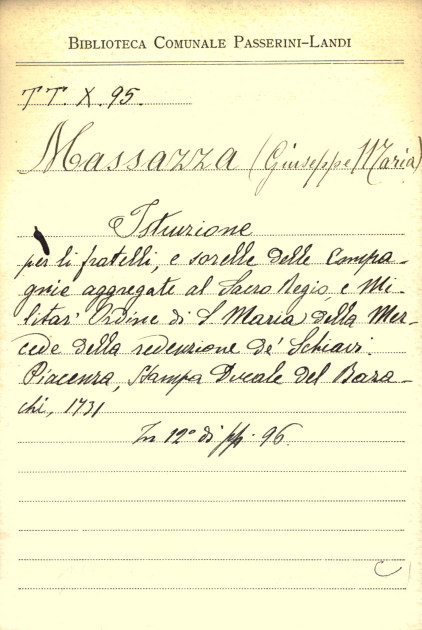 BIBLIOTECA COMUNALE PASSERINI-LANDI
TT. X. 95.
Massazza (Giuseppe Maria)
Istruzione
per li fratelli, e sorelle delle Compa-
gnie aggregate al Sacro Regio, e Mi-
litar' Ordine di S. Maria della Mer-
cede della redenzione de' Schiavi.
Piacenza, Stampa Ducale del Baza-
chi, 1731
In 12° di pp. 96.
C